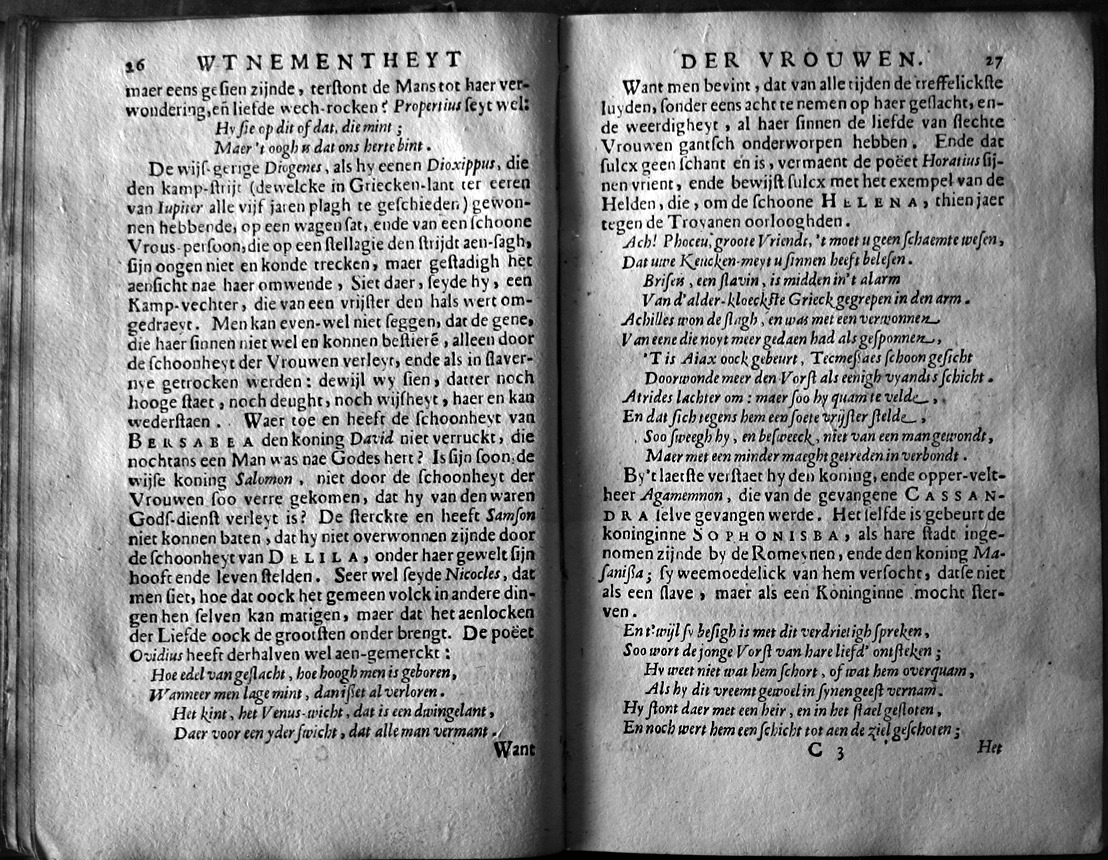 26 WTNEMENTHEYT
maer eens gesien zijnde, terſtont de Mans tot haer ver-
wondering, en liefde wech-rocken? Propertius ſeyt wel:
Hy ſie op dit of dat, die mint;
Maer 't oogh is dat ons herte bint.
De wijſ-gerige Diogenes, als hy eenen Dioxippus, die
den kamp-ſtrijt (dewelcke in Griecken-lant ter eeren
van Iupiter alle vijf jaren plagh te geſchieden) gewon-
nen hebbende, op een wagen ſat, ende van een ſchoone
Vrous-perſoon, die op een ſtellagie den ſtrijdt aen-ſagh,
ſijn oogen niet en konde trecken, maer geſtadigh het
aenſicht nae haer omwende, Siet daer, ſeyde hy, een
Kamp-vechter, die van een vrijſter den hals wert om-
gedraeyt. Men kan even-wel niet ſeggen, dat de gene,
die haer ſinnen niet wel en konnen beſtierē, alleen door
de ſchoonheyt der Vrouwen verleyt, ende als in ſlaver-
nye getrocken werden: dewijl wy ſien, datter noch
hooge ſtaet, noch deught, noch wijſheyt, haer en kan
wederſtaen. Waer toe en heeft de ſchoonheyt van
BERSABEA den koning David niet verruckt, die
nochtans een Man was nae Godes hert? Is ſijn ſoon, de
wijſe koning Salomon, niet door de ſchoonheyt der
Vrouwen ſoo verre gekomen, dat hy van den waren
Godſ-dienſt verleyt is? De ſterckte en heeft Samſon
niet konnen baten, dat hy niet overwonnen zijnde door
de ſchoonheyt van DELILA, onder haer gewelt ſijn
hooft ende leven ſtelden. Seer wel ſeyde Nicocles, dat
men ſiet, hoe dat oock het gemeen volck in andere din-
gen hen ſelven kan matigen, maer dat het aenlocken
der Liefde oock de grootſten onder brengt. De poëet
Ovidius heeft derhalven wel aen-gemerckt:
Hoe edel van geſlacht, hoe hoogh men is geboren,
Wanneer men lage mint, dan iſſet al verloren.
Het kint, het Venus-wicht, dat is een dwingelant,
Daer voor een yder ſwicht, dat alle man vermant.
Want
DER VROUWEN. 27
Want men bevint, dat van alle tijden de treffelickſte
luyden, ſonder eens acht te nemen op haer geſlacht, en-
de weerdigheyt, al haer ſinnen de liefde van ſlechte
Vrouwen gantſch onderworpen hebben. Ende dat
ſulcx geen ſchant en is, vermaent de poëet Horatius ſij-
nen vrient, ende bewijſt ſulcx met het exempel van de
Helden, die, om de ſchoone HELENA, thien jaer
tegen de Troyanen oorlooghden.
Ach! Phoceu, groote Vriendt, 't moet u geen ſchaemte weſen,
Dat uwe Keucken-meyt u ſinnen heeft beleſen.
Briſeis, een ſlavin, is midden in 't alarm
Van d'alder-kloeckſte Grieck gegrepen in den arm.
Achilles won de ſlagh, en was met een verwonnen,
Van eene die noyt meer gedaen had als geſponnen,
'T is Aiax oock gebeurt, Tecmeſſaes ſchoon geſicht
Doorwonde meer den Vorſt als eenigh vyandts ſchicht.
Atrides lachter om: maer ſoo hy quam te velde,
En dat ſich tegens hem een ſoete vrijſter ſtelde,
Soo ſweegh hy, en beſweeck, niet van een man gewondt,
Maer met een minder maeght getreden in verbondt.
By 't laetſte verſtaet hy den koning, ende opper-velt-
heer Agamemnon, die van de gevangene CASSAN-
DRA ſelve gevangen werde. Het ſelfde is gebeurt de
koninginne SOPHONISBA, als hare ſtadt inge-
nomen zijnde by de Romeynen, ende den koning Ma-
ſaniſſa; ſy weemoedelick van hem verſocht, datſe niet
als een ſlave, maer als een Koninginne mocht ſter-
ven.
En t'wijl ſy beſigh is met dit verdrietigh ſpreken,
Soo wort de jonge Vorſt van hare liefd' ontſteken;
Hy weet niet wat hem ſchort, of wat hem overquam,
Als hy dit vreemt gewoel in ſynen geeſt vernam.
Hy ſtont daer met een heir, en in het ſtael geſloten,
En noch wert hem een ſchicht tot aen de ziel geſchoten;
C 3 Het